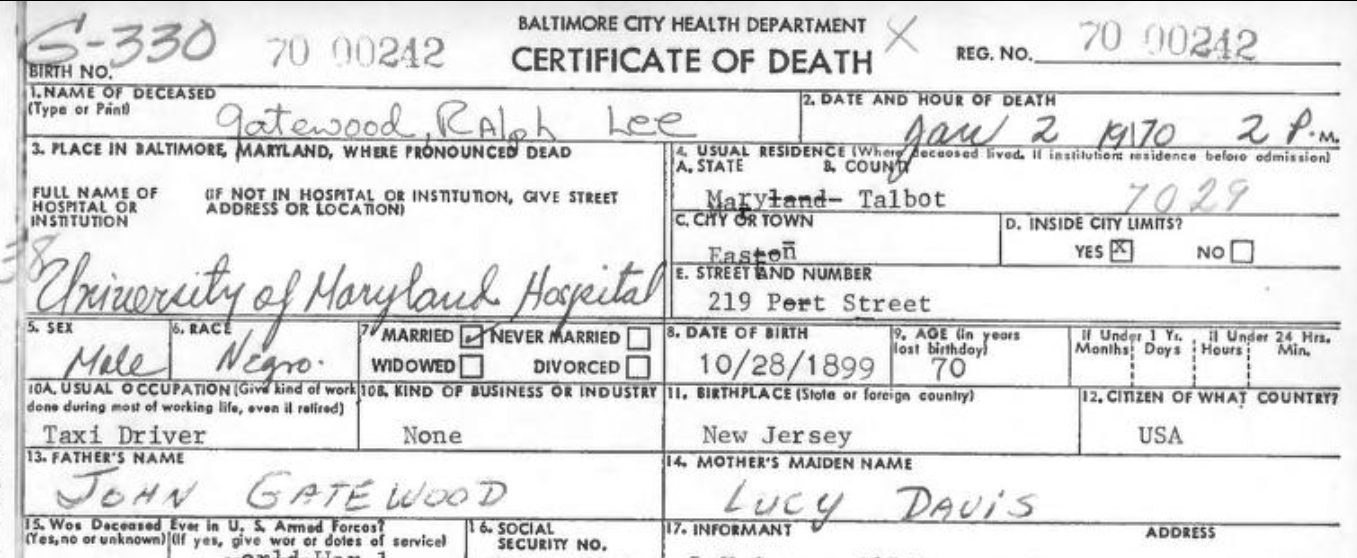 BALTIMORE CITY HEALTH DEPARTMENT
G-330 70 00242 CERTIFICATE OF DEATH X REG. NO. 70 00242
BIRTH NO.
1. NAME OF DECEASED
(Type or Print)
Gatewood, Ralph Lee
2. DATE AND HOUR OF DEATH
Jan 2 1970 2 P.M.
3. PLACE IN BALTIMORE, MARYLAND, WHERE PRONOUNCED DEAD
FULL NAME OF HOSPITAL OR INSTITUTION
(IF NOT IN HOSPITAL OR INSTITUTION, GIVE STREET
ADDRESS OR LOCATION)
38
University of Maryland Hospital
4. USUAL RESIDENCE (Where deceased lived. If institution: residence before admission)
A. STATE B. COUNTY
Maryland- Talbot 7029
C. CITY OR TOWN
Easton
D. INSIDE CITY LIMITS?
YES X NO
E. STREET AND NUMBER
219 Port Street
5. SEX
Male
6. RACE
Negro.
7. MARRIED ✓ NEVER MARRIED
WIDOWED DIVORCED
8. DATE OF BIRTH
10/28/1899
9. AGE (in years
last birthday)
70
If Under 1 Yr. If Under 24 Hrs.
Months Days Hours Min.
10A. USUAL OCCUPATION (Give kind of work
done during most of working life, even if retired)
Taxi Driver
10B. KIND OF BUSINESS OR INDUSTRY
None
11. BIRTHPLACE (State or foreign country)
New Jersey
12. CITIZEN OF WHAT COUNTRY?
USA
13. FATHER'S NAME
JOHN GATEWOOD
14. MOTHER'S MAIDEN NAME
LUCY DAVIS
15. Was Deceased Ever in U. S. Armed Forces?
(Yes, no or unknown) (If yes, give war or dates of service)
World War 1
16. SOCIAL
SECURITY NO.
17. INFORMANT ADDRESS